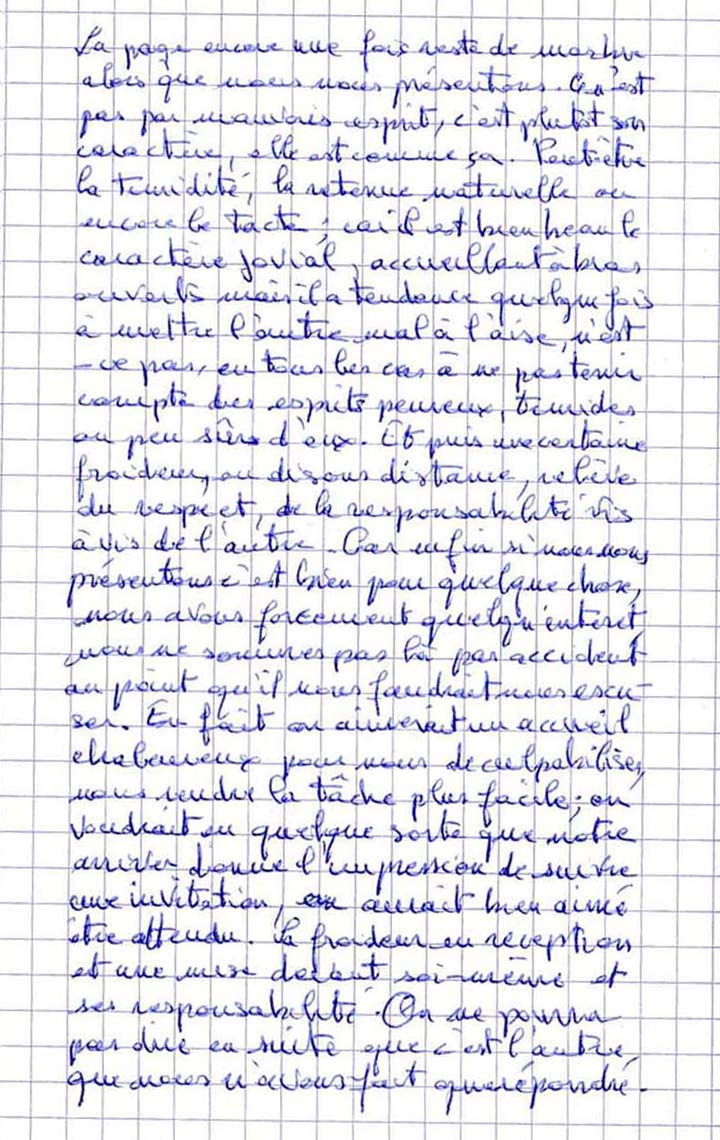 La page encore une fois reste de marbre
alors que nous nous présentons. Ce n'est
pas par mauvais esprit, c'est plutôt son
caractère, elle est comme ça. Peut-être
la timidité, la retenue naturelle ou
encore le tact ; car il est bien beau le
caractère jovial, accueillant à bras
ouverts mais il a tendance quelque fois
à mettre l'autre mal à l'aise, n'est
-ce pas, en tous les cas à ne pas tenir
compte des esprits peureux, timides
ou peu sûrs d'eux. Et puis une certaine
froideur, ou disons distance, relève
du respect, de la responsabilité vis
à vis de l'autre. Car enfin si nous nous
présentons c'est bien pour quelque chose,
nous avons forcément quelqu'interet,
nous ne sommes pas là par accident
au point qu'il nous faudrait nous excu-
ser. En fait on aimerait un accueil
chaleureux pour nous déculpabiliser,
nous rendre la tâche plus facile ; on
voudrait en quelque sorte que notre
arrivée donne l'impression de suivre
une invitation, on aurait bien aimé
être attendu. La froideur en réception
est une mise devant soi-même et
ses responsabilité. On ne pourra
pas dire en suite que c'est l'autre,
que nous n'avons fait que répondre.